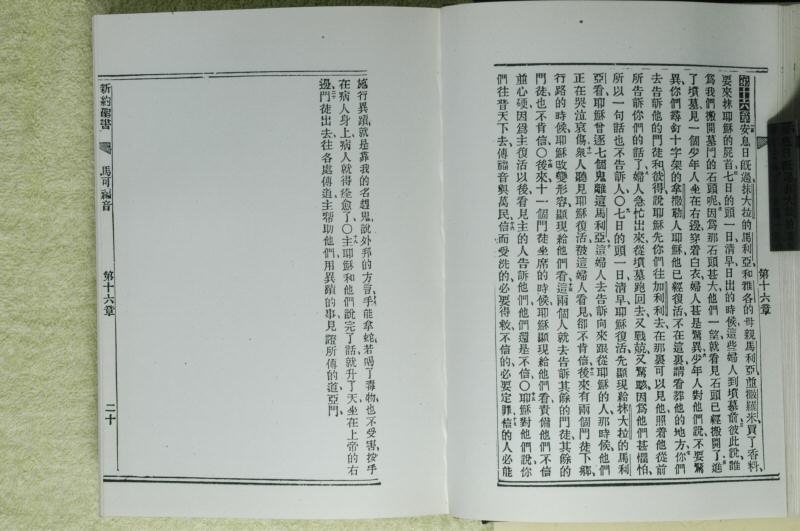 第十六章
第十六章安息日旣過抹大拉的馬利亞和雅各的母親馬利亞並撒羅米買了香料
要來抹耶穌的屍首七日的頭一日淸早日出的時候這些婦人到墳墓前彼此說誰
爲我們搬開墓門的石頭呢因爲那石頭甚大他們一望就看見石頭已經搬開了進
了墳墓見一個少年人坐在右邊穿着白衣婦人甚是驚異少年人對他們說不要驚
異你們尋釘十字架的拿撒勒人耶穌他已經復活不在這裏請看葬他的地方你們
去告訴他的門徒和彼得說耶穌先你們往加利利去在那裏可以見他照着他從前
所告訴你們的話了婦人急忙出來從墳墓跑回去又戰兢又驚駭因爲他們甚懼怕
所以一句話也不告訴人〇七日的頭一日淸早耶穌復活先顯現給抹大拉的馬利
亞看耶穌曾逐七個鬼離這馬利亞這婦人去告訴向來跟從耶穌的人那時候他們
正在哭泣哀傷衆人聽見耶穌復活被這婦人看見卻不肯信後來有兩個門徒下鄉
行路的時候耶穌改變形容顯現給他們看這兩個人就去告訴其餘的門徒其餘的
門徒也不肯信〇後來十一個門徒坐席的時候耶穌顯現給他們看責備他們不信
並心硬因爲主復活以後看見主的人告訴他們他們還是不信〇耶穌對他們說你
們往普天下去傳福音與萬民信而受洗的必要得救不信的必要定罪信的人必能
施行異蹟就是靠我的名趕鬼說外邦的方言手能拿蛇若喝了毒物也不受害按手
在病人身上病人就得痊愈了〇主耶穌和他們說完了話就升了天坐在上帝的右
邊門徒出去往各處傳道主幫助他們用異蹟的事見證所傳的道亞門
新約聖書 馬可福音 第十六章 二十